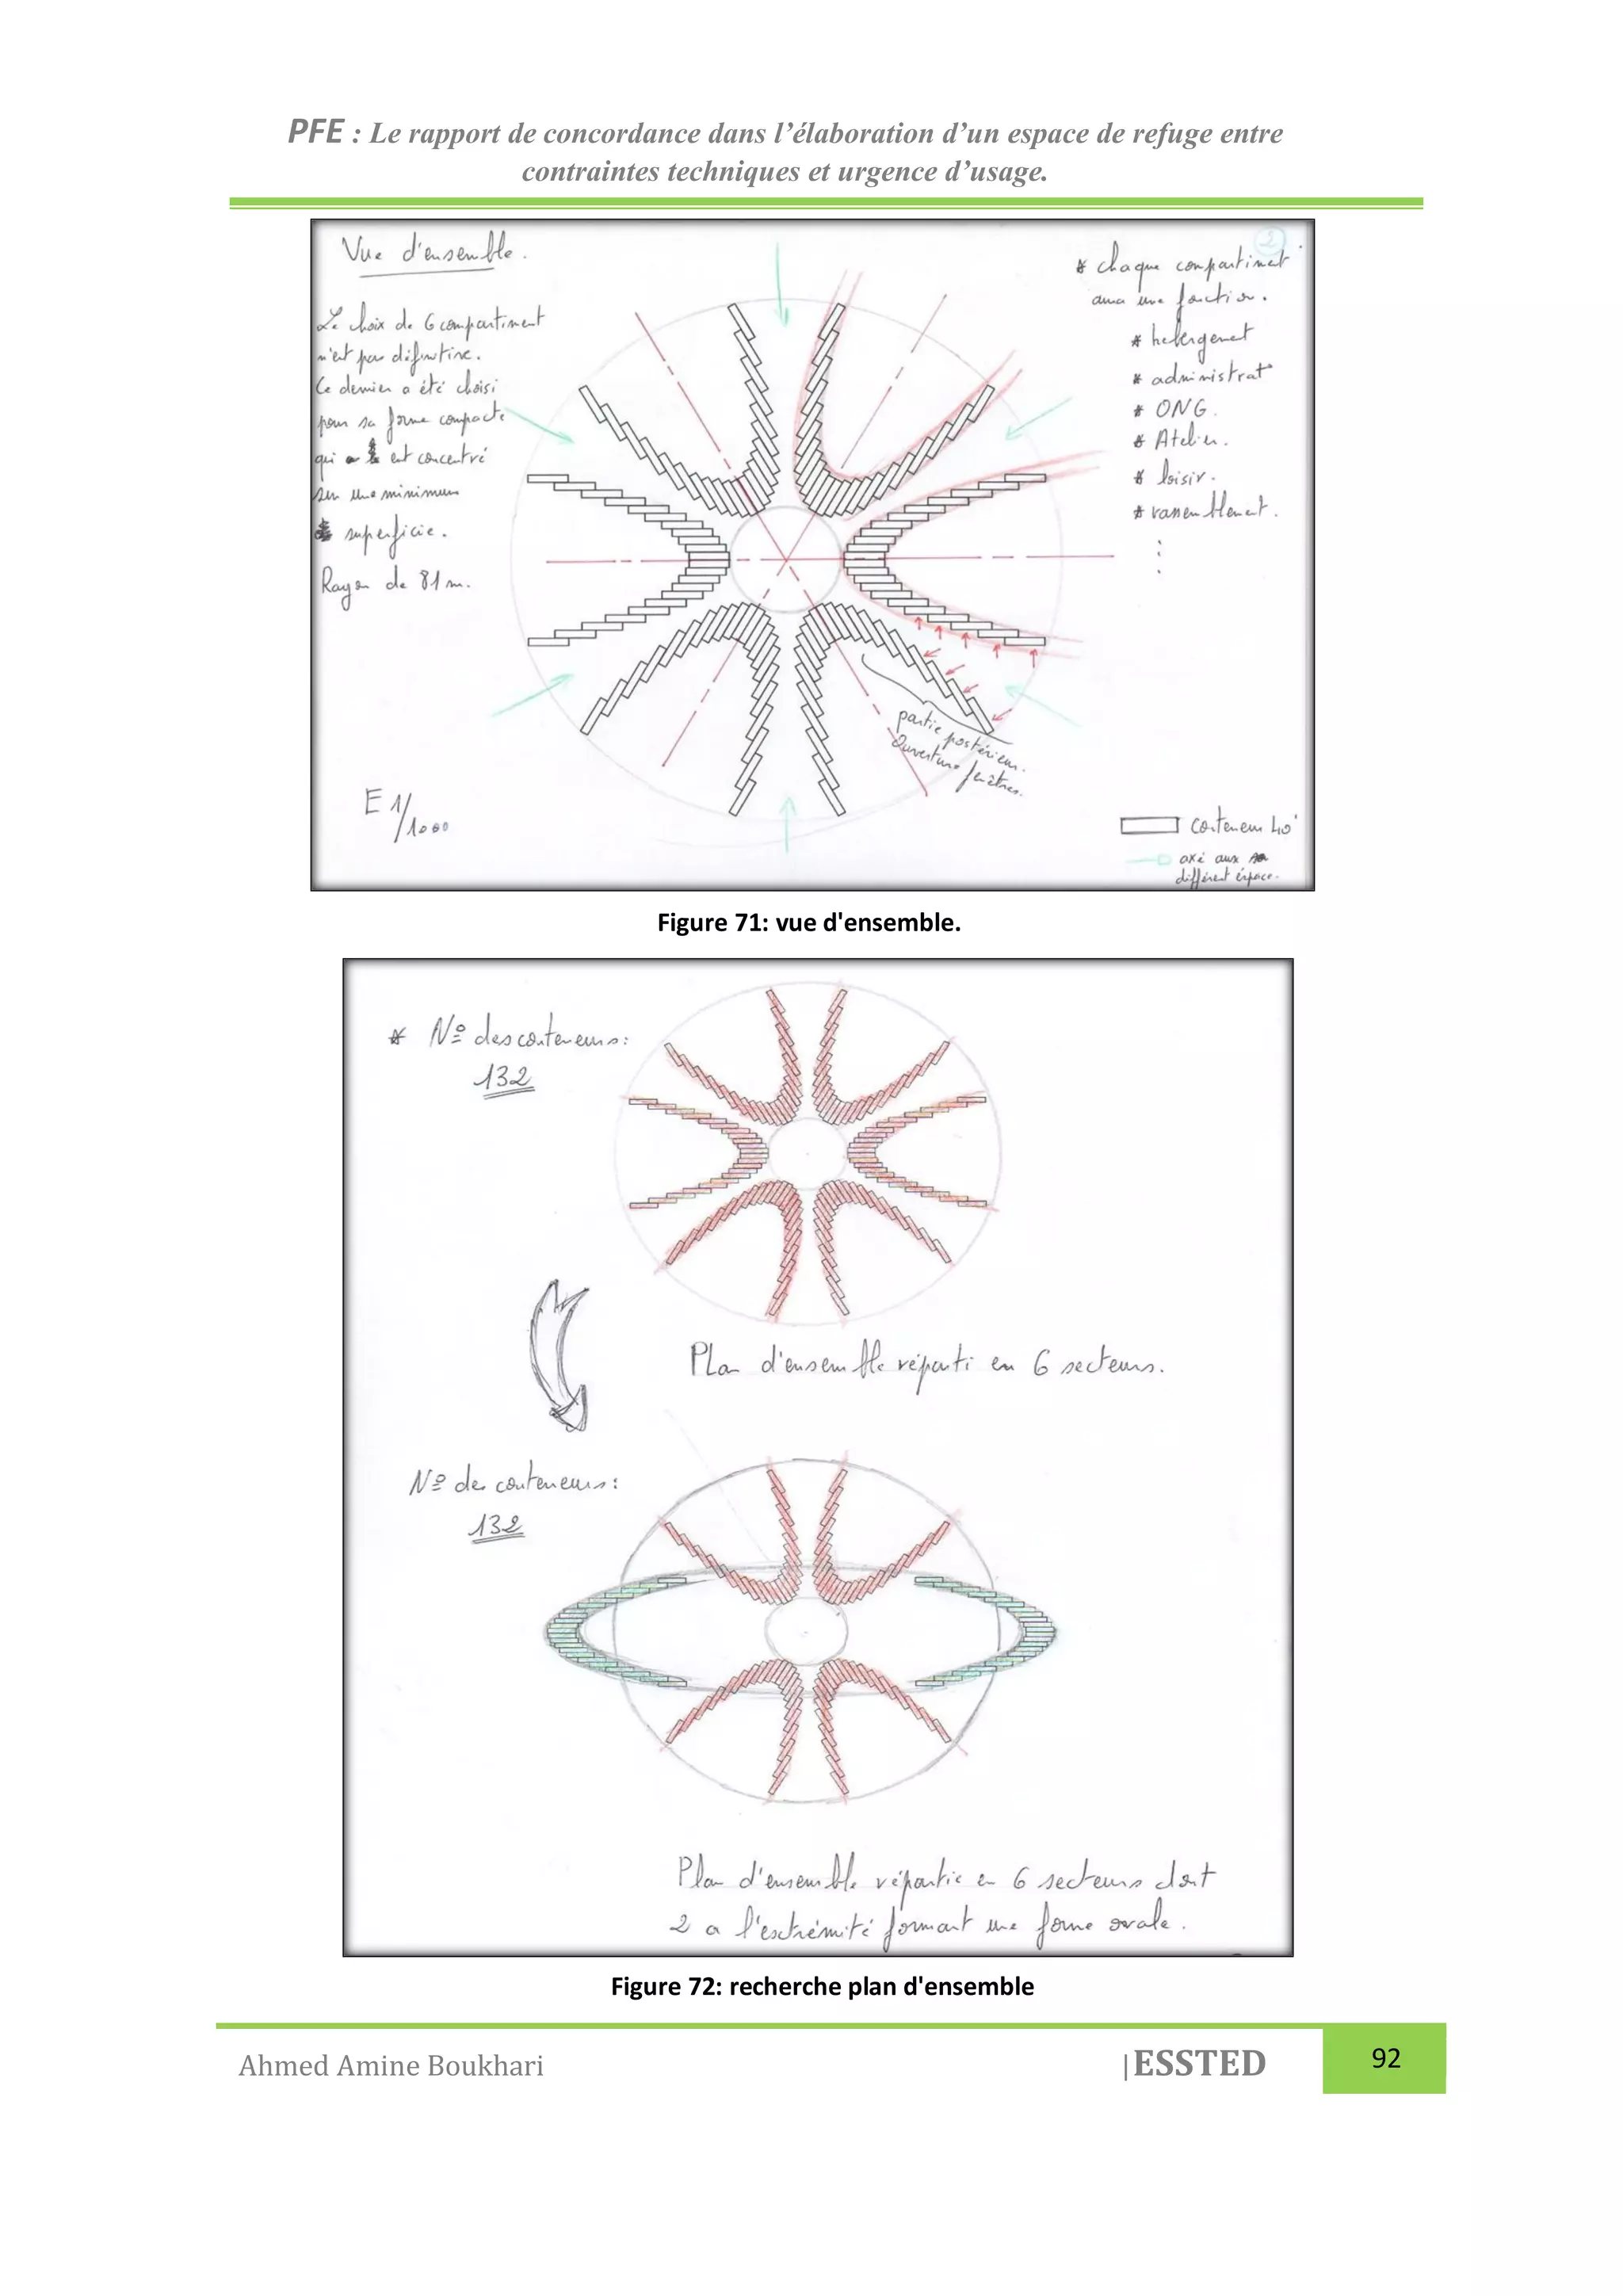 PFE : Le rapport de concordance dans l’élaboration d’un espace de refuge entre
contraintes techniques et urgence d’usage.
Vue d'ensemble.
Le choix de 6 compartiment
n'est pas définitive.
Ce dernier a été choisi
pour sa forme compacte
qui est concentré
sur une minimum
superficie.
Rayon de 81 m.
E 1/1000
2
* chaque compartiment
aura une fonction.
* hebergemet
* administrat°
* ONG.
* Atelier.
* loisir.
* rassemblement.
partie postérieur.
Ouverture fenêtres.
conteneur 40'
axé aux
différent éspace.
Figure 71: vue d'ensemble.
* Nº des conteneurs:
132
Plan d'ensemble réparti en 6 secteurs.
Nº des conteneurs:
132
Plan d'ensemble répartie en 6 secteurs dont
2 a l'extrémité formant une forme ovale.
Figure 72: recherche plan d'ensemble
Ahmed Amine Boukhari
|ESSTED
92